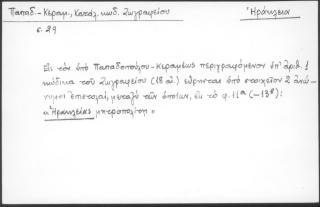 Παπαδ.-Κεραμ., Καταλ. κωδ. Ζωγραφείου
Ἡράκλεια
σ. 29
Εἰς τὸν ὑπὸ Παπαδοπούλου-Κεραμέως περιγραφόμενον ὑπ' ἀριθ. 1
κώδικα τοῦ Ζωγραφείου (18 αἰ.) εὕρηνται ὑπὸ στοιχεῖον 2 ἀνώ-
νυμοι ἐπιστολαί, μεταξὺ τῶν ὁποίων, εἰς τὸ φ. 11α (-13β):
«Ἡρακλείας μητροπολίτῃ»